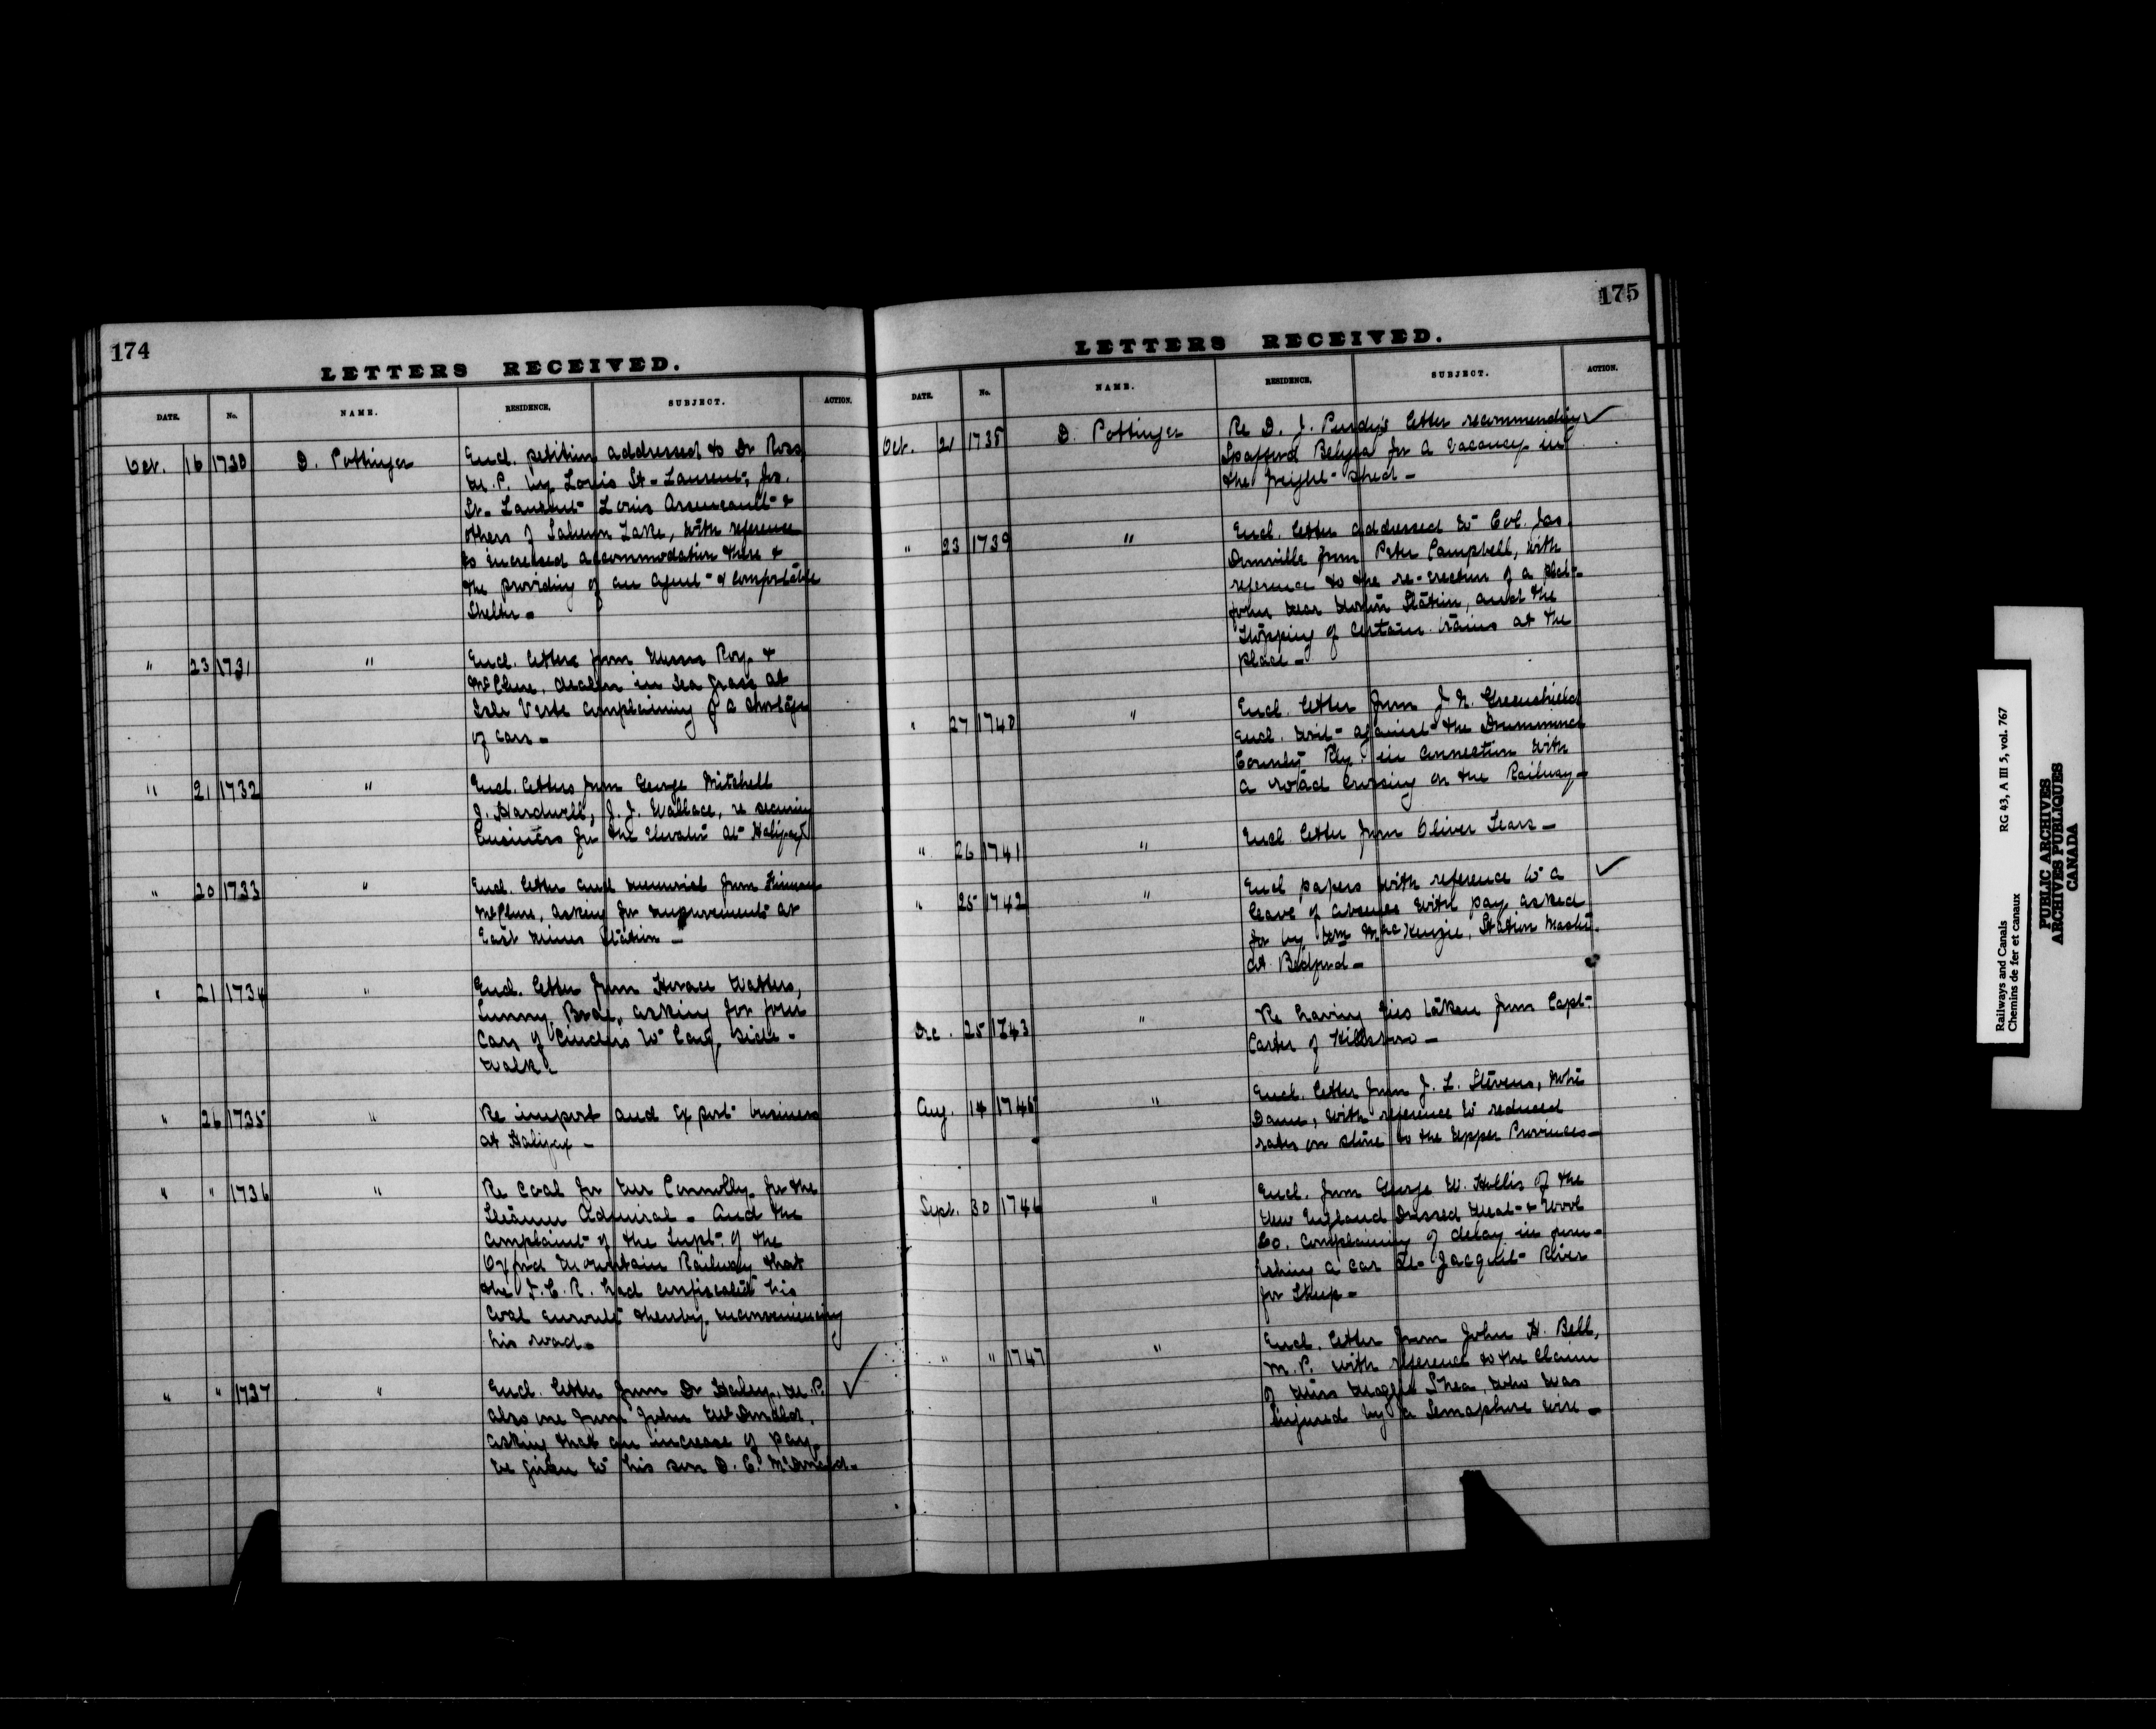 174
LETTERS RECEIVED.
DATE. No. NAME. RESIDENCE, SUBJECT. ACTION.
Oct. 16 1730 D. Pottinger Encl. petition addressed to Dr Ross
M.P. by Louis St-Laurent, Jos.
St-Laurent Louis Arseneault &
others of Salmon Lake, with reference
to increased accommodation there &
the providing of an agent & comfortable
Shelter -
" 23 1731 " Encl. letters from Messrs Roy &
McClure, dealers in Sea grass at
Isle Verte complaining of a shortage
of cars -
" 21 1732 " Encl. letters from George Mitchell
J. Hardwell, J. J. Wallace, re securing
business for the Elevator at Halifax
" 20 1733 " Encl. letter and memorial from Firman
McClure, asking for improvements at
East Mines Station -
" 21 1734 " Encl. letter from Horace Watters,
Sunny Brae, asking for four
Cars of Cinders to Cary side-
walk.
" 26 1735 " Re import and export business
at Halifax -
" " 1736 " Re Coal for Mr Connolly for the
Steamer Admiral - And the
Complaint of the Supt. of the
Oxford Mountain Railway that
the I.C.R. had confiscated his
Coal enroute thereby inconveniencing
his road -
" " 1737 " Encl. letter from Dr Haley, M.P. ✓
also one from John McDonald,
asking that an increase of pay
be given to his son D. C. McDonald -
175
LETTERS RECEIVED.
DATE. No. NAME. RESIDENCE, SUBJECT. ACTION.
Oct. 21 1738 D. Pottinger Re D. J. Purdy's letter recommending ✓
Spafford Belyea for a vacancy in
the freight-shed -
" 23 1739 " Encl. letter addressed to Col. Jas.
Domville from Peter Campbell, with
reference to the re-erection of a plat-
form near Norton Station, and the
Stopping of certain trains at the
place -
" 27 1740 " Encl. letter from J. N. Greenshields
encl. Writ against the Drummond
County Rly. in connection with
a road crossing on the Railway -
" 26 1741 " Encl. letter from Oliver Sears -
" 25 1742 " Encl papers with reference to a ✓
leave of absence with pay asked
for by Wm MacKenzie, Station Master
at Bedford -
Dec. 25 1743 " Re having ties taken from Capt.
Carter of Hillsboro -
Aug. 14 1745 " Encl. letter from J. L. Stevens, Notre
Dame, with reference to reduced
rates on stone to the Upper Provinces -
Sept. 30 1746 " Encl. from George W. Hollis of the
New England Dressed Meat & Wool
Co. complaining of delay in furn-
ishing a car at Jacquet River
for Sheep -
" " 1747 " Encl. letter from John H. Bell,
M.P. with reference to the Claim
of Miss Maggie Shea, who was
injured by a Semaphore wire -
Railways and Canals RG 43, A III 5, vol. 767
Chemins de fer et canaux
PUBLIC ARCHIVES
ARCHIVES PUBLIQUES
CANADA